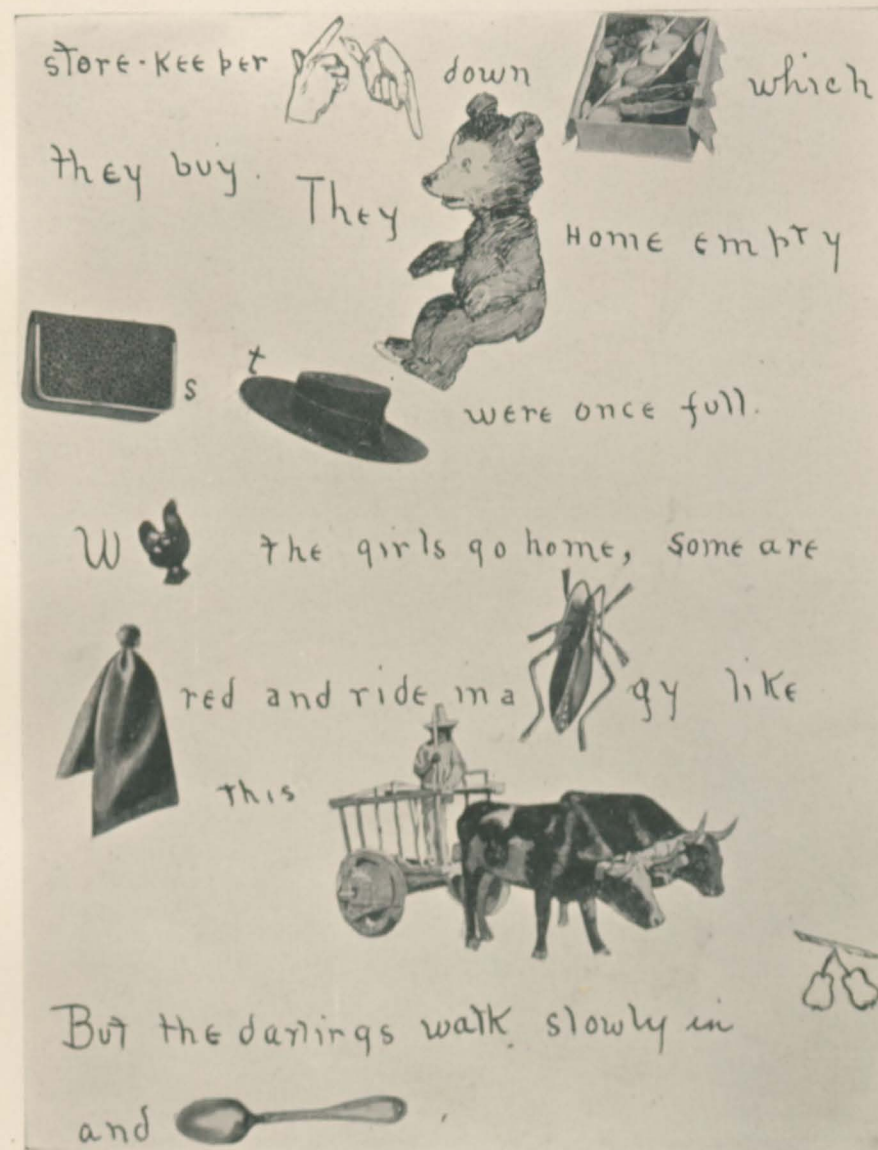 store-keeper down which
they buy. They
Home empty
s t were once full.
W the girls go home, some are
red and ride in a gy like
this
But the darlings walk slowly in
and